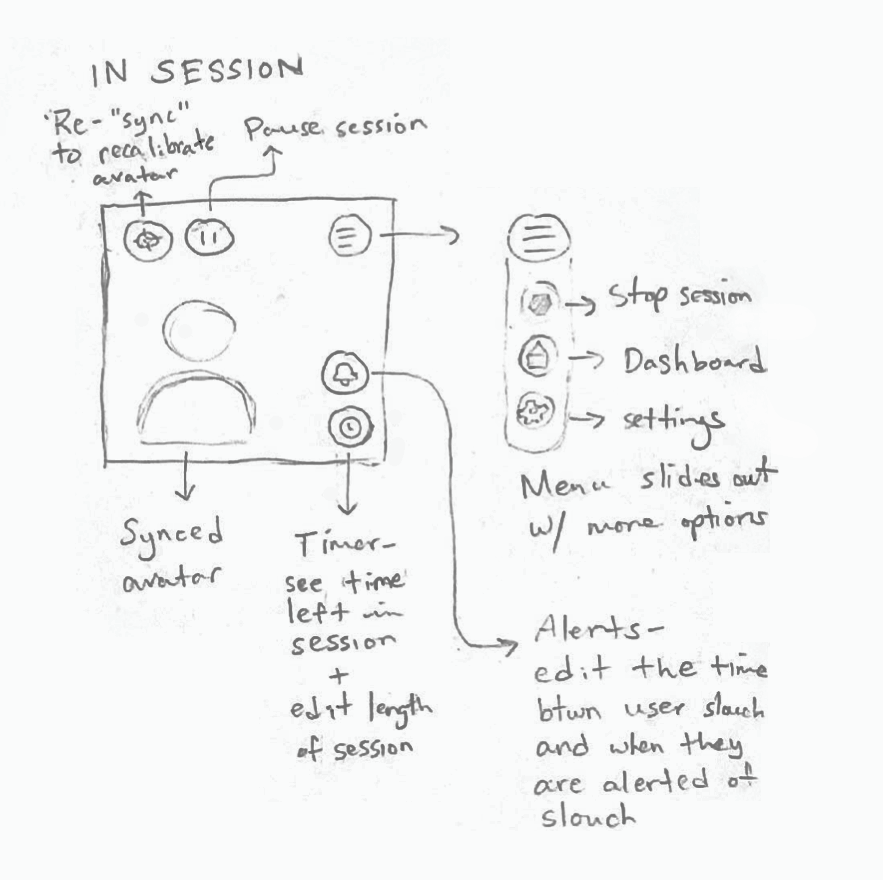 IN SESSION
Re-"sync"
to recalibrate
avatar
Pause session
Stop session
Dashboard
settings
Menu slides out
w/ more options
Synced
avatar
Timer-
see time
left in
session
+
edit length
of session
Alerts-
edit the time
btwn user slouch
and when they
are alerted of
slouch